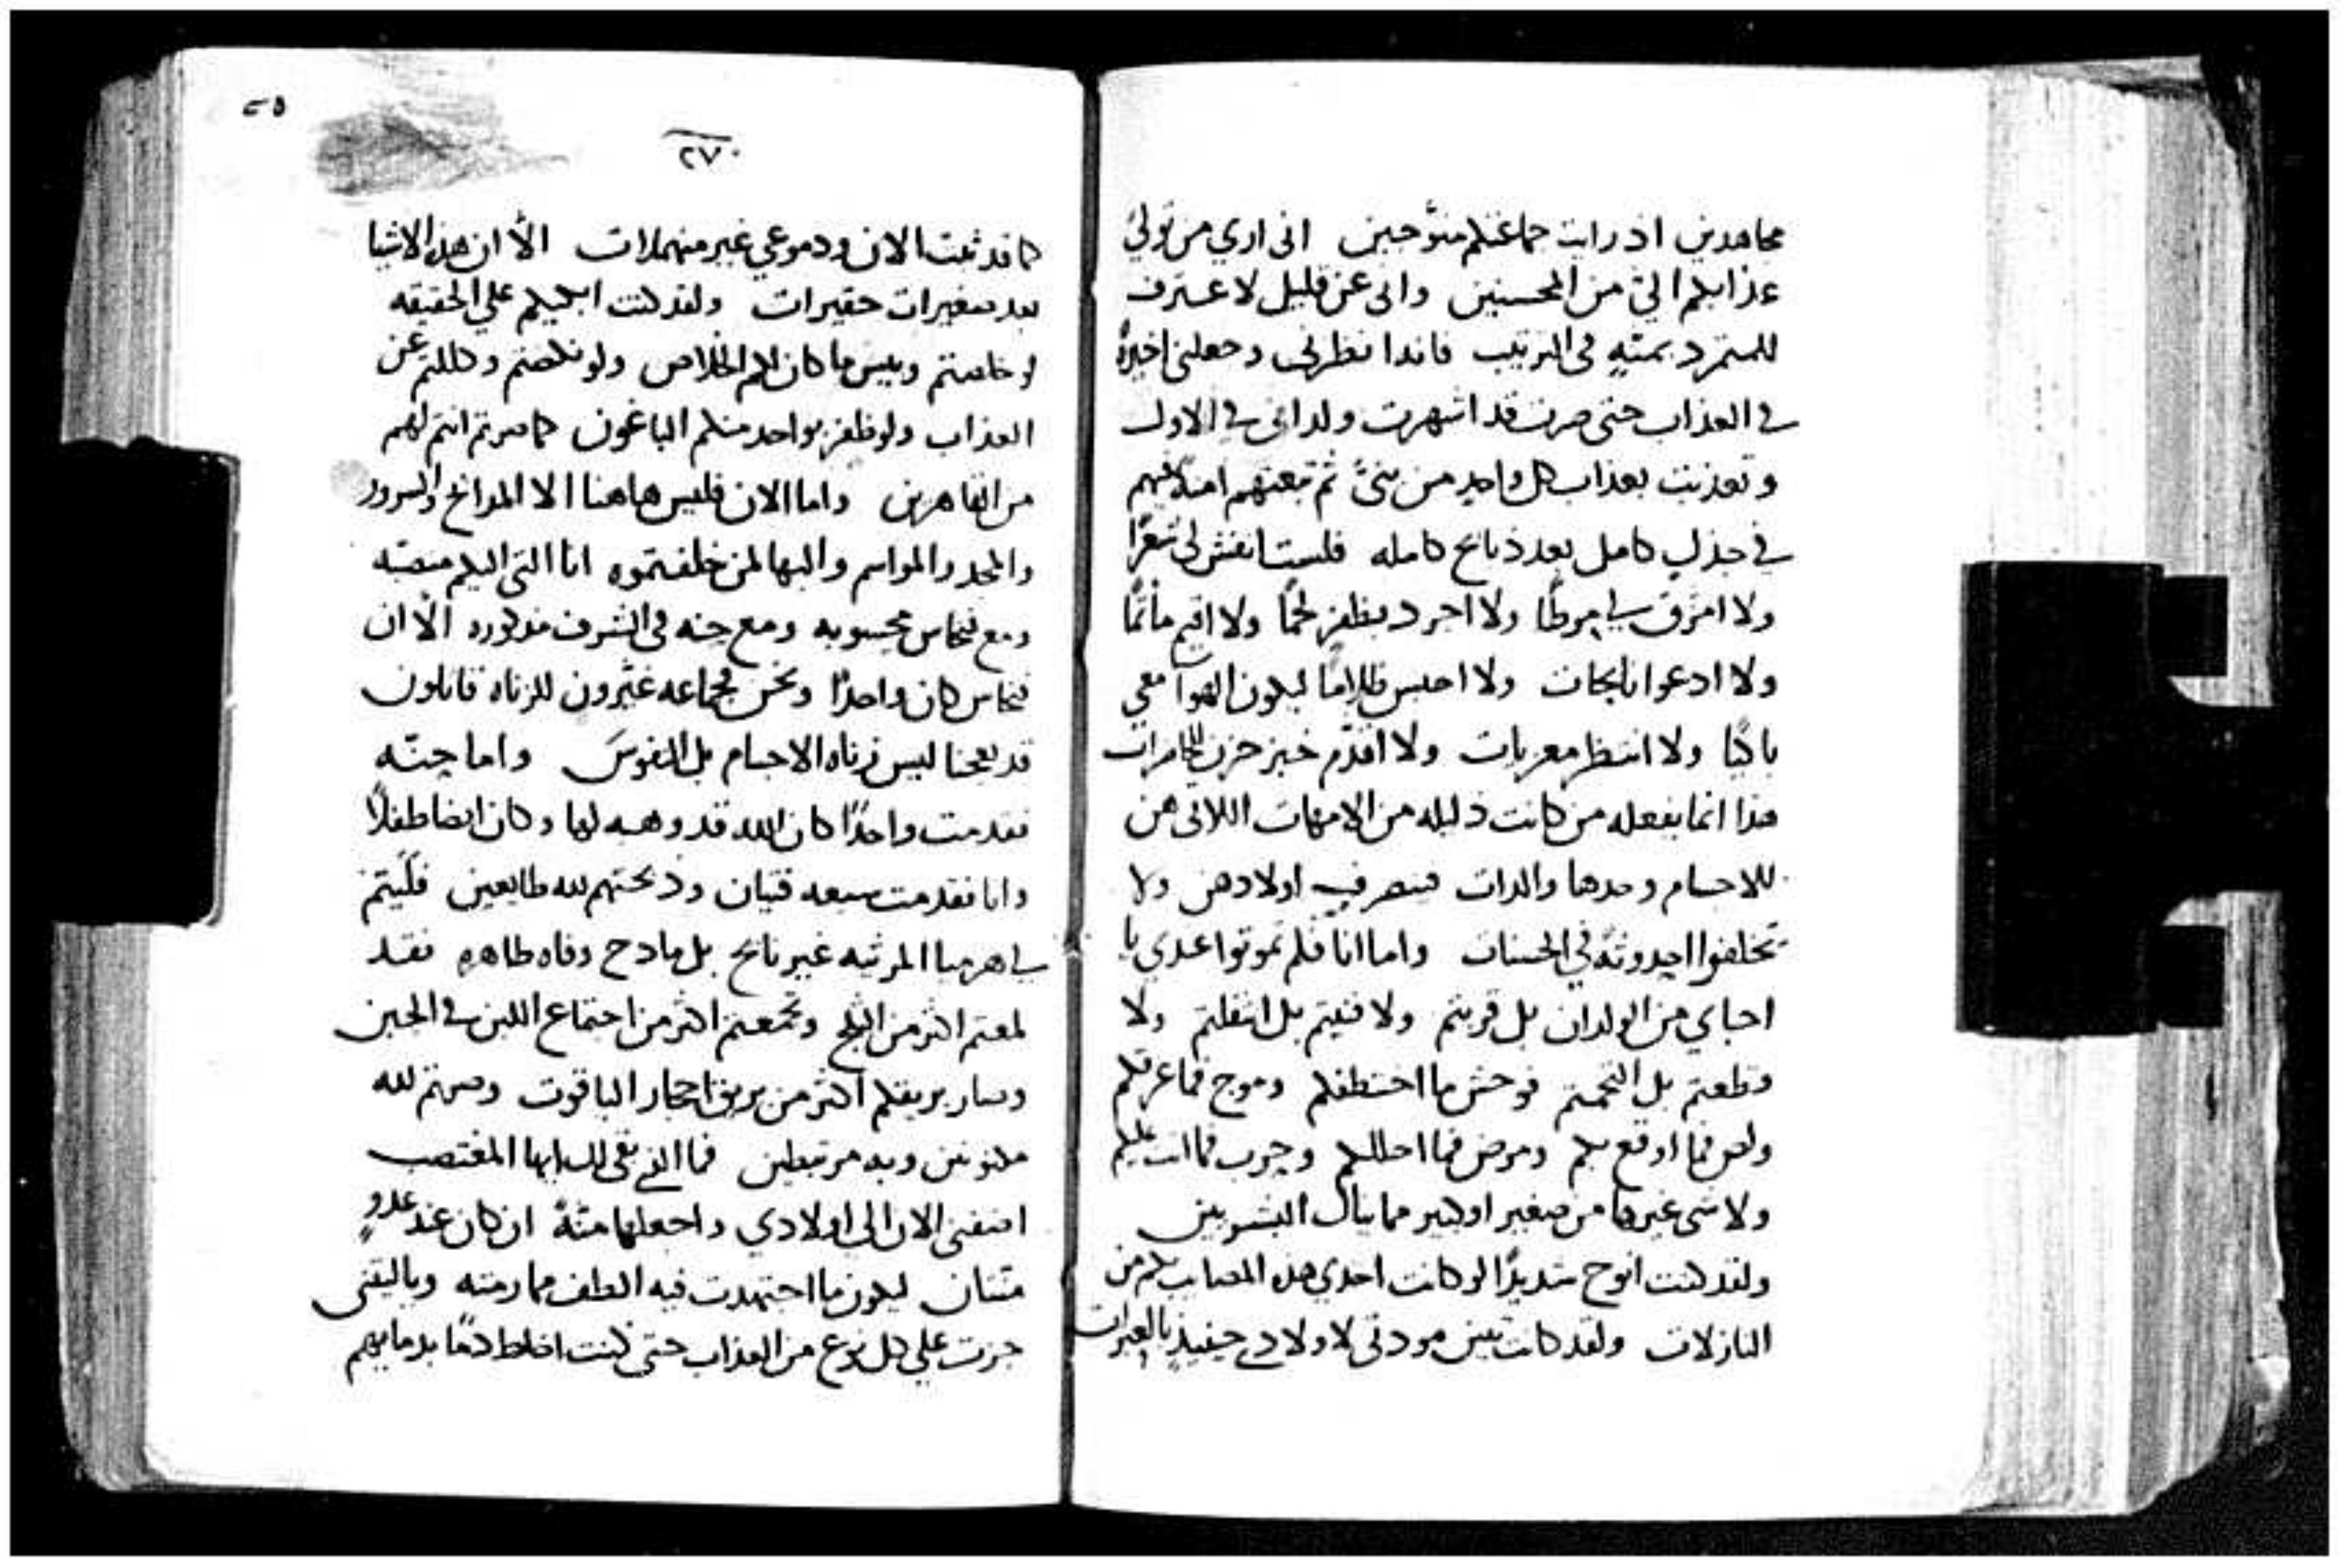 مجاهدين اذ رايت جماعتكم متوّجين انى اري من تولى
عذابكم الىّ من المحسنين وانى عن قليل لا عترف
للمتمرد بمنّةٍ في الترتيب فاندا نظرنى وجعلنى اخيرةً
في العذاب حتى صرت قد اشهرت ولدانى في الاول
وتعذبت بعذاب كل واحدٍ من بنىّ ثم تبعتهم امنة لهم
في جذلٍ كامل بعد ذبائح كامله فلست انفش لى شعرًا
ولا امزّق لي مرطًا ولا اجرد بظفرٍ لحمًا ولا اقيم مأتمًا
ولا ادعوا نايحات ولا احبس ظلامًا ليكون الهوآ معي
باكيًا ولا انتظر معزيات ولا اقدّم خبز حزن للحاضرات
هذا انما يفعله من كانت ذليله من الامهات اللاتى هن
للاجسام وحدها والدات فينصرف اولادهن ولا
تخلفوا احدوثة في الحسنات واما انا فلم تموتوا عندي يا
احباي من الولدان بل قربتم ولا فنيتم بل انتقلتم ولا
قطعتم بل التحمتم فوحش ما اختطفكم وموج فما غرقكم
ولص فما اوقع بكم ومرض فما احللكم وحرب فما اتت عليكم
ولا شى غيرها من صغير او كبير مما ينال البشريين
ولقد كنت انوح شديدًا لو كانت احدي هذه المصايب بكم من
النازلات ولقد كانت تبين مودتى لاولادي حينيذٍ بالعبرات
٢٥
٢٧٠
كما قد ثبتت الان ودموعي غير منهملات الّا ان هذه الاشيا
بعد صغيرات حقيرات ولقد كنت ابكيكم علي الحقيقه
لو خلصتم وبيس ما كان لكم الخلاص ولو نكصتم وكللتم عن
العذاب ولو ظفر بواحد منكم الباغون كما صرتم انتم لهم
من القاهرين واما الان فليس هاهنا الا المدائح والسرور
والمجد والمواسم والبها لمن خلفتموه انا التى اليكم منصبّه
ومع فنحاس محسوبه ومع حنه في الشرف مذكوره الّا ان
فنحاس كان واحدًا ونحن فجماعه غيّرون للزناه قاتلون
قد بعجنا ليس زناه الاجسام بل النفوس واما حنّه
فقدمت واحدًا كان الله قد وهبه لها وكان ايضا طفلًا
وانا فقدمت سبعه فتيان وذبحتهم لله طايعين فليتمّ
لي هرميا المرثيه غير نايح بل مادح وفاه طاهره فقد
لمعتم اكثر من الثلج وتجمعتم اكثر من اجتماع اللبن في الجبن
وصار بريقكم اكثر من بريق احجار الياقوت وصرتم لله
مكنونين وبه مرتبطين فما الذي بقى لك ايها المغتصب
اضفنى الان الى اولادي واجعلها منّةً ان كان عند عدوٍ
منتان ليكون ما اجتهدت فيه الطف مما رمته وياليتنى
جزت علي كل نوع من العذاب حتى كنت اخلط دمًا بدمايهم